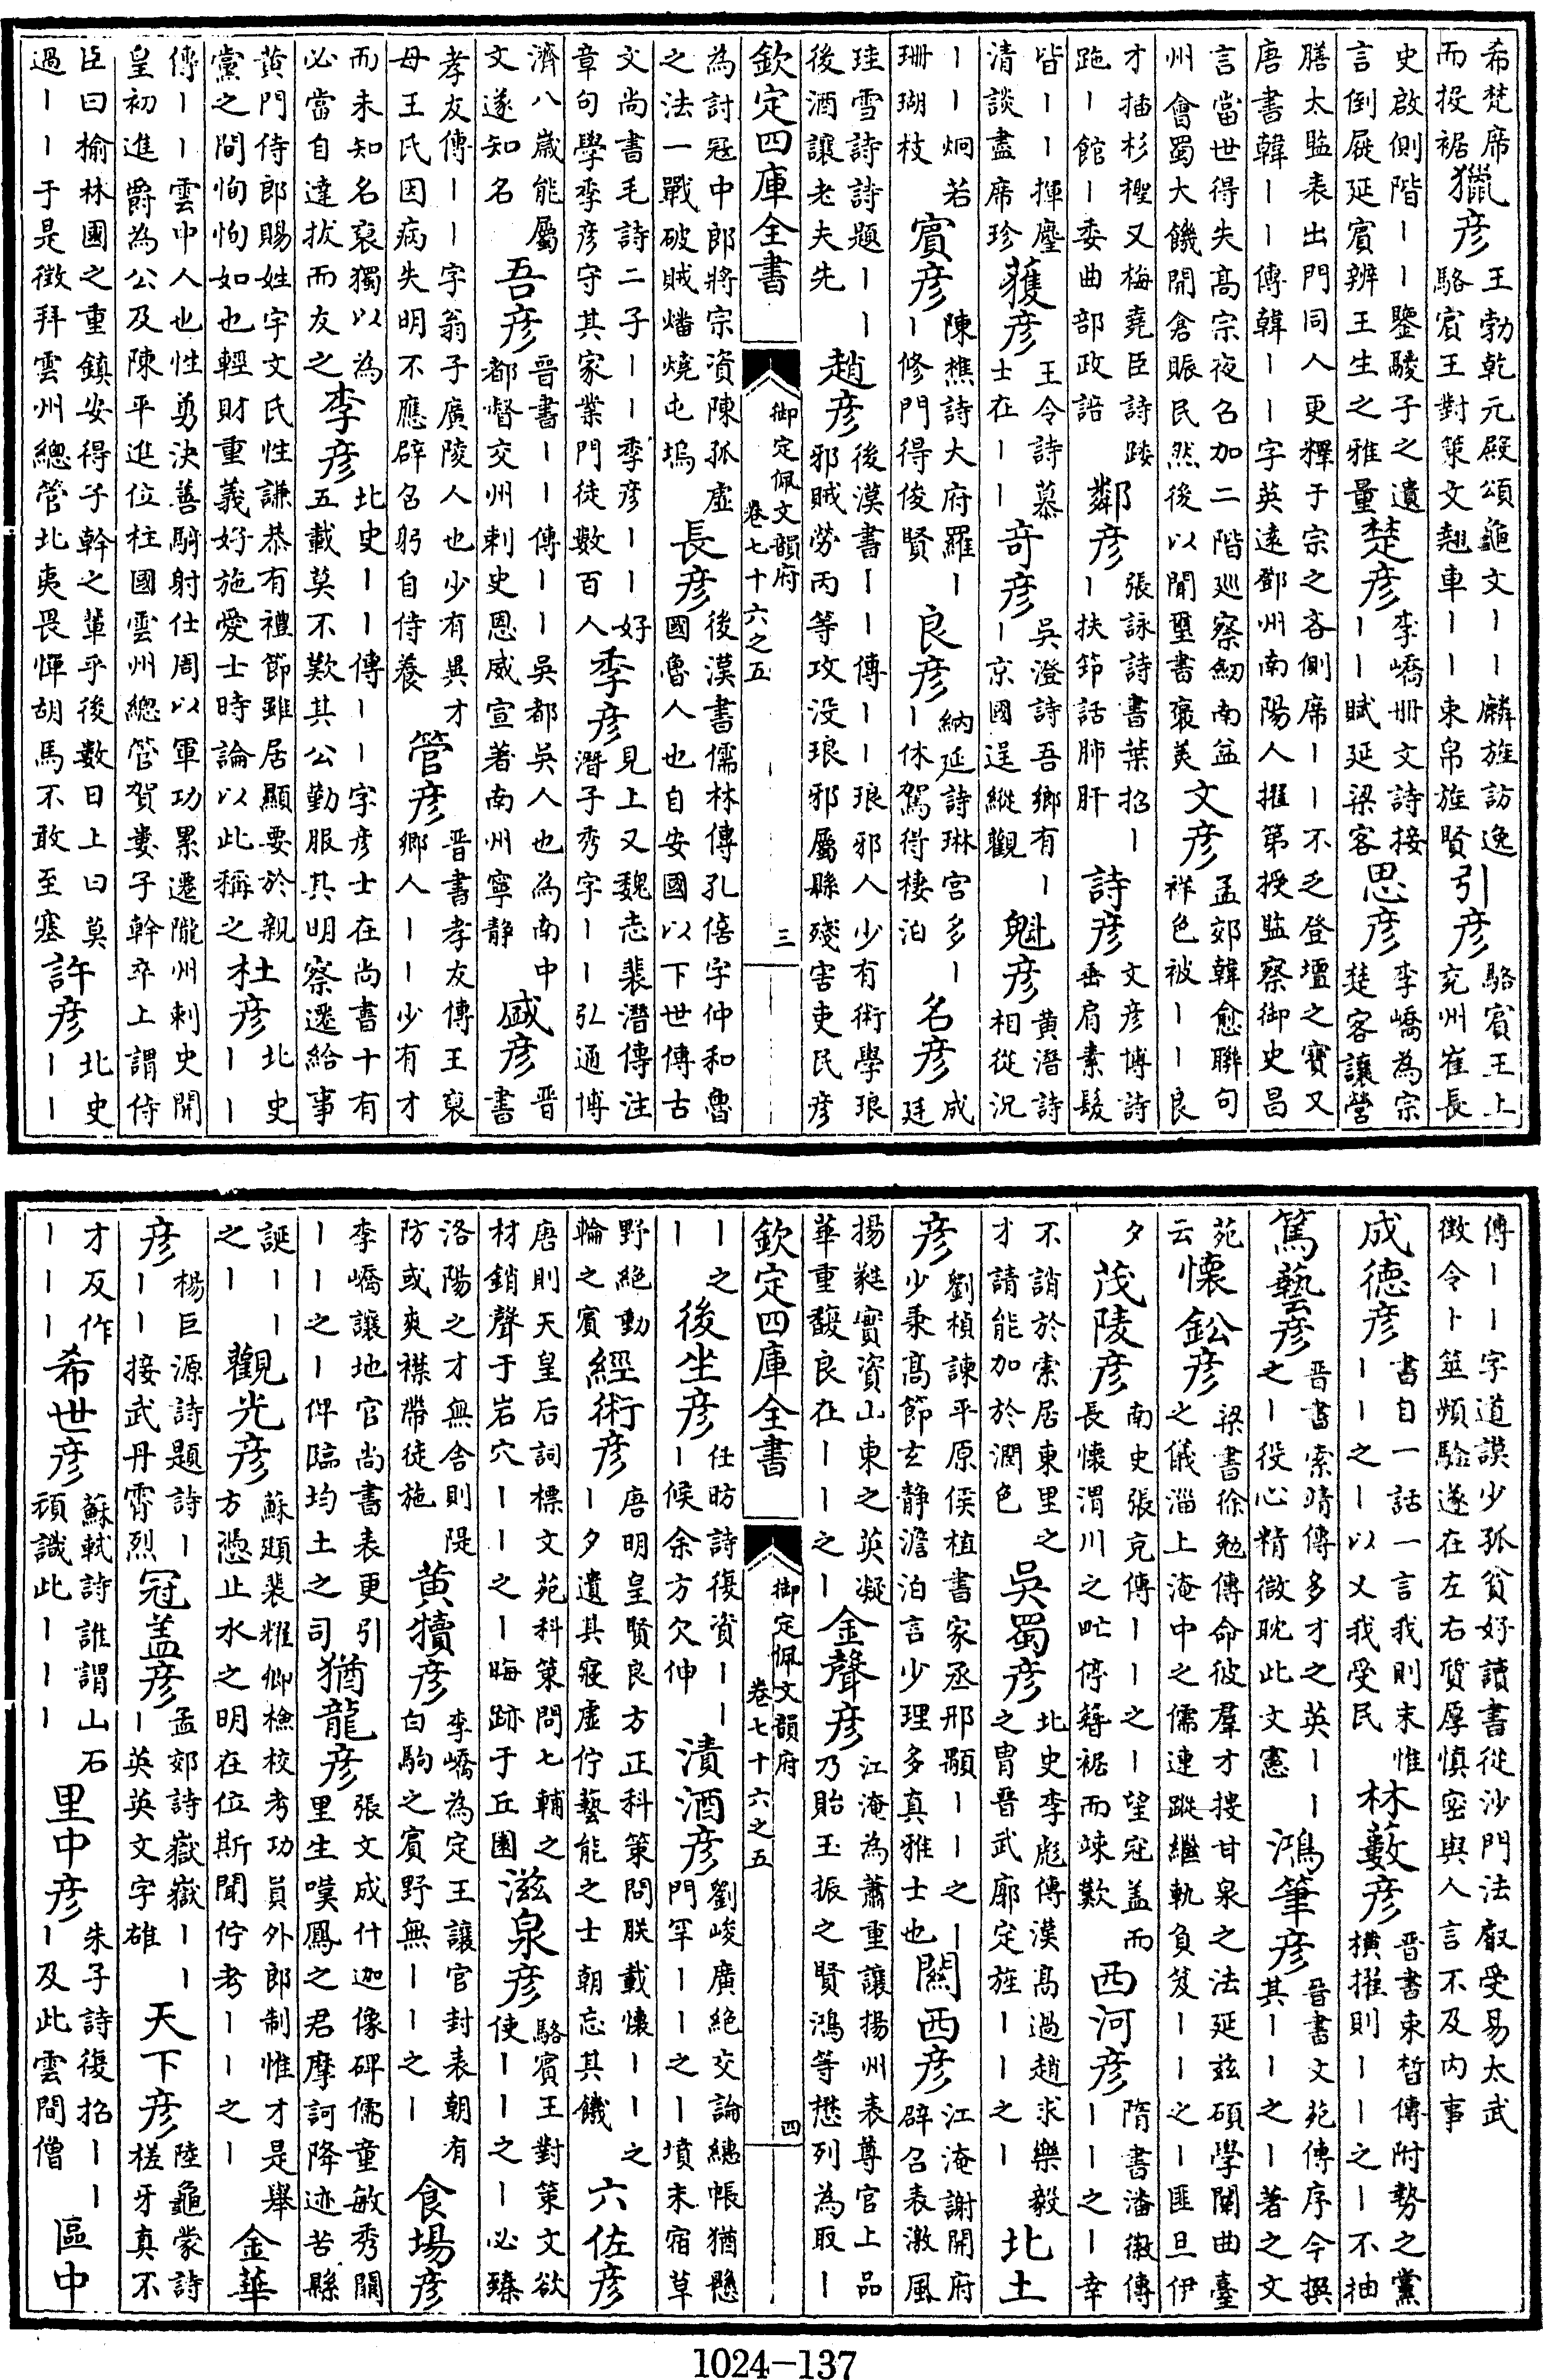 希梵席而投裾獵彦王勃乾元殿頌龜文——麟旌訪逸駱賓王對策文翹車——束帛旌賢引彦駱賓王上兖州崔長
史啟側階——鑒騣子之遺言倒屣延賓辨王生之雅量楚彦李嶠冊文詩接——賦延梁客思彦李嶠為宗楚客讓營
膳太監表出門同人更釋于宗之吝側席——不乏登壇之寶又唐書韓——傳韓——字英遠鄧州南陽人擢第授監察御史昌
言當世得失高宗夜召加二階廵察劒南益州會蜀大饑開倉賑民然後以聞璽書褒美文彦孟郊韓愈聯句祥色被——良
才插杉檉又梅堯臣詩踐跎—館—委曲部政諳鄰彦張詠詩書葉招——扶節話肺肝詩彦文彦博詩垂肩素髮
皆——揮麈清談盡席珍蒦彦王令詩慕士在——奇彦吳澄詩吾鄉有——京國逞縱觀魁彦黄潛詩相從況
——炯若珊瑚枝賓彦陳樵詩大府羅——修門得俊賢良彦納延詩琳宮多——休駕得棲泊名彦成廷
珪雪詩詩題——後酒讓老夫先趙彦後漢書——傳——琅邪人少有術學琅邪賊勞丙等攻没琅邪屬縣殘害吏民彦
欽定四庫全書 御定佩文韻府卷七十六之五 三
為討冦中郎將宗資陳孤虛之法一戰破賊燔燒屯塢長彦後漢書儒林傳孔僖字仲和魯國魯人也自安國以下世傳古
文尚書毛詩二子——季彦——好章句學季彦守其家業門徒數百人季彦見上又魏志裴潛傳注潛子秀字——弘通博
濟八嵗能屬文遂知名吾彦晋書——傳——吳都吳人也為南中都督交州刺史恩威宣著南州寧静盛彦晋書
孝友傳——字翁子廣陵人也少有異才母王氏因病失明不應辟召躬自侍養管彦晋書孝友傳王裒鄉人——少有才
而未知名裒獨以為必當自達拔而友之李彦北史——傳——字彦士在尚書十有五載莫不歎其公勤服其明察遷給事
黄門侍郎賜姓宇文氏性謙恭有禮節雖居顯要於親黨之間恂恂如也輕財重義好施愛士時論以此稱之杜彦北史——
傳——雲中人也性勇決善騎射仕周以軍功累遷隴州刺史開皇初進爵為公及陳平進位柱國雲州總管賀婁子幹卒上謂侍
臣曰榆林國之重鎮安得子幹之軰乎後數日上曰莫過——于是徵拜雲州總管北夷畏憚胡馬不敢至塞許彦北史——
傳——字道謨少孤貧好讀書從沙門法叡受易太武徵令卜筮頻驗遂在左右質厚慎密與人言不及内事
成德彦書自一話一言我則末惟——之—以乂我受民林藪彦晋書束晳傳附勢之黨横擢則——之—不抽
篤藝彦晋書索靖傳多才之英—之—役心精微耽此文憲鴻筆彦晋書文苑傳序今撰其——之—著之文
苑云懷鈆彦梁書徐勉傳命彼羣才搜甘泉之法延兹碩學闡曲臺之儀淄上淹中之儒連蹤繼軌負笈——之—匪旦伊
夕茂陵彦南史張充傳——之—望冠盖而長懷渭川之甿佇簪裾而竦歎西河彦隋書潘徽傳——之—幸
不誚於索居東里之才請能加於潤色吳蜀彦北史李彪傳漢高過趙求樂毅之冑晋武廓定旌——之—北土
彦劉楨諫平原侯植書家丞邢顒——之—少秉高節玄静澹泊言少理多真雅士也關西彦江淹謝開府辟召表激風
揚蕤實資山東之英凝華重馥良在——之—金聲彦江淹為蕭重讓揚州表尊官上品乃貽玉振之賢鴻等懋列為取—
欽定四庫全書 御定佩文韻府卷七十六之五 四
——之—後坐彦任昉詩復資———候余方欠伸漬酒彦劉峻廣絶交論繐帳猶懸門罕——之—墳未宿草
野絶動輪之賓經術彦唐明皇賢良方正科策問朕載懷——之—夕遺其寢虚佇藝能之士朝忘其饑六佐彦
唐則天皇后詞標文苑科策問七輔之材銷聲于岩穴——之—晦跡于丘園滋泉彦駱賓王對策文欲使——之—必臻
洛陽之才無舍則隄防或爽襟帶徒施黄犢彦李嶠為定王讓官封表朝有白駒之賓野無——之—食場彦
李嶠讓地官尚書表更引——之—伴臨均土之司猶龍彦張文成什迦像碑儒童敏秀闕里生嘆鳳之君摩訶降迹苦縣
誕——之—觀光彦蘇頲裴耀卿檢校考功員外郎制惟才是舉方憑止水之明在位斯聞佇考——之—金華
彦楊巨源詩題詩———接武丹霄烈冠盖彦孟郊詩嶽嶽———英英文字雄天下彦陸龜蒙詩槎牙真不
才反作———希世彦蘇軾詩誰謂山石頑識此———里中彦朱子詩復招———及此雲間僧區中
1024-137